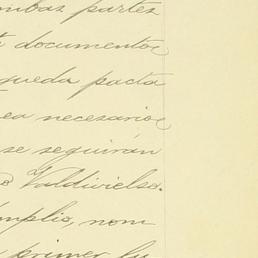 ambas partes
documentos
queda pacta
ea necesarios
se seguirán
Valdivielso.
ámplio, nom
primer lu